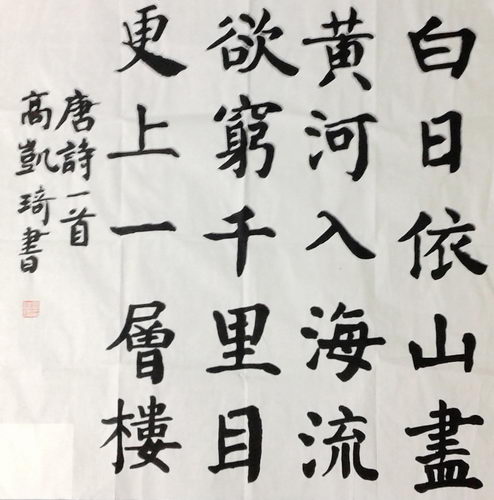 白日依山盡
黃河入海流
欲窮千里目
更上一層樓
唐詩一首
高凱琦書